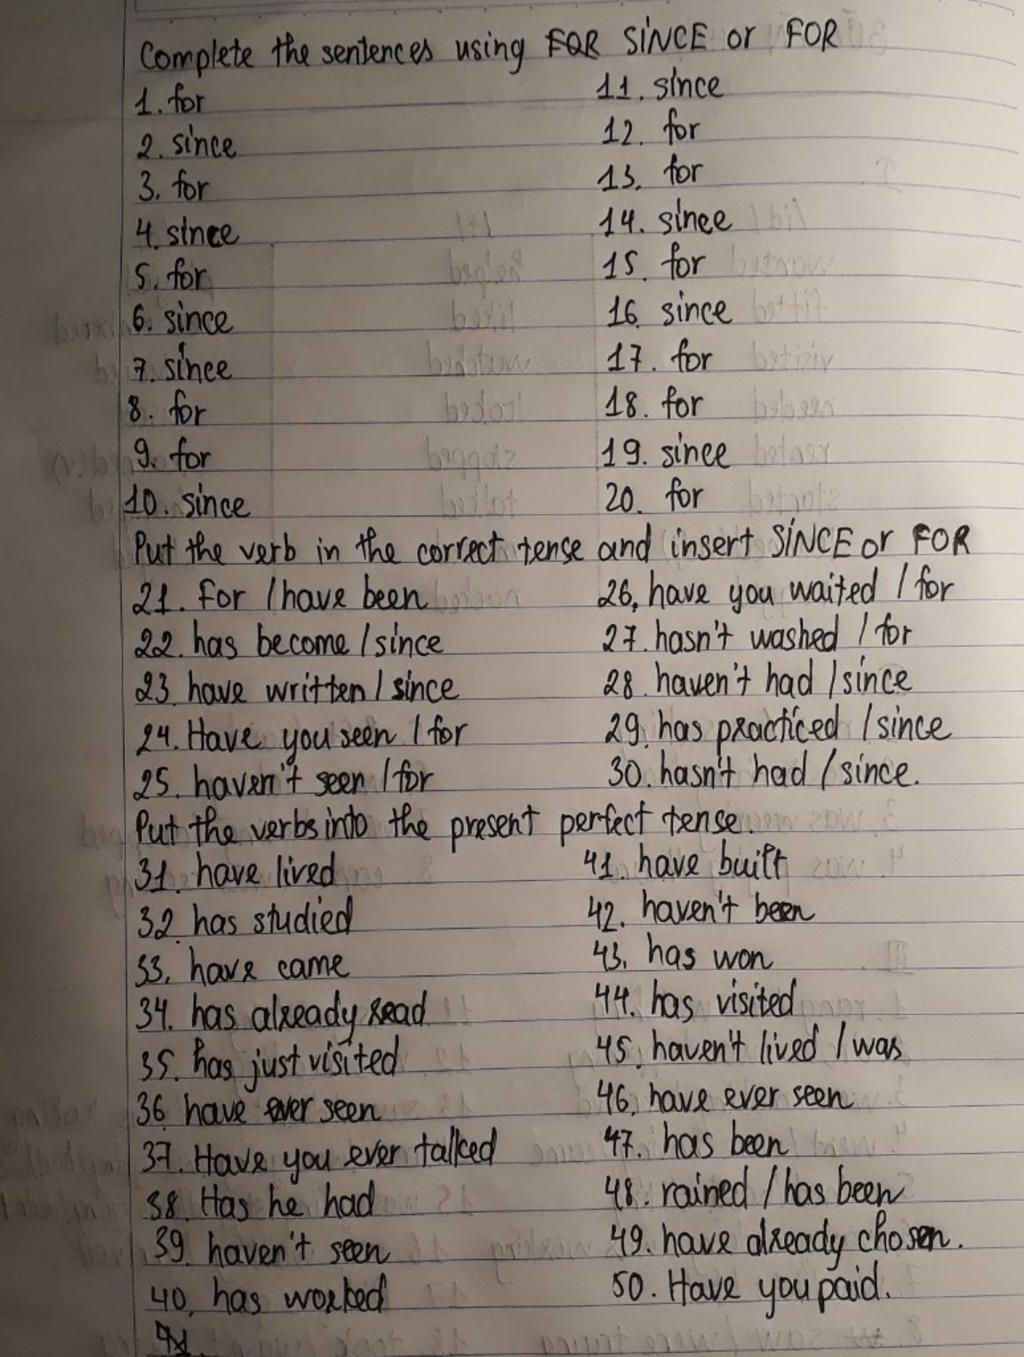 Complete the sentences using FOR SINCE or FOR
1. for
2. since
3. for
4. since
5. for
6. since
7. since
8. for
9. for
10. since
11. since
12. for
13. for
14. since
15. for
16. since
17. for
18. for
19. since
20. for
Put the verb in the correct tense and insert SINCE or FOR
21. For / have been
22. has become / since
23. have written / since
24. Have you seen / for
25. haven't seen / for
26. have you waited / for
27. hasn't washed / for
28. haven't had / since
29. has practiced / since
30. hasn't had / since.
Put the verbs into the present perfect tense.
31. have lived
32. has studied
33. have came
34. has already read
35. has just visited
36. have ever seen
37. Have you ever talked
38. Has he had
39. haven't seen
40. has worked
41.
41. have built
42. haven't been
43. has won
44. has visited
45. haven't lived / was
46. have ever seen
47. has been
48. rained / has been
49. have already chosen.
50. Have you paid.